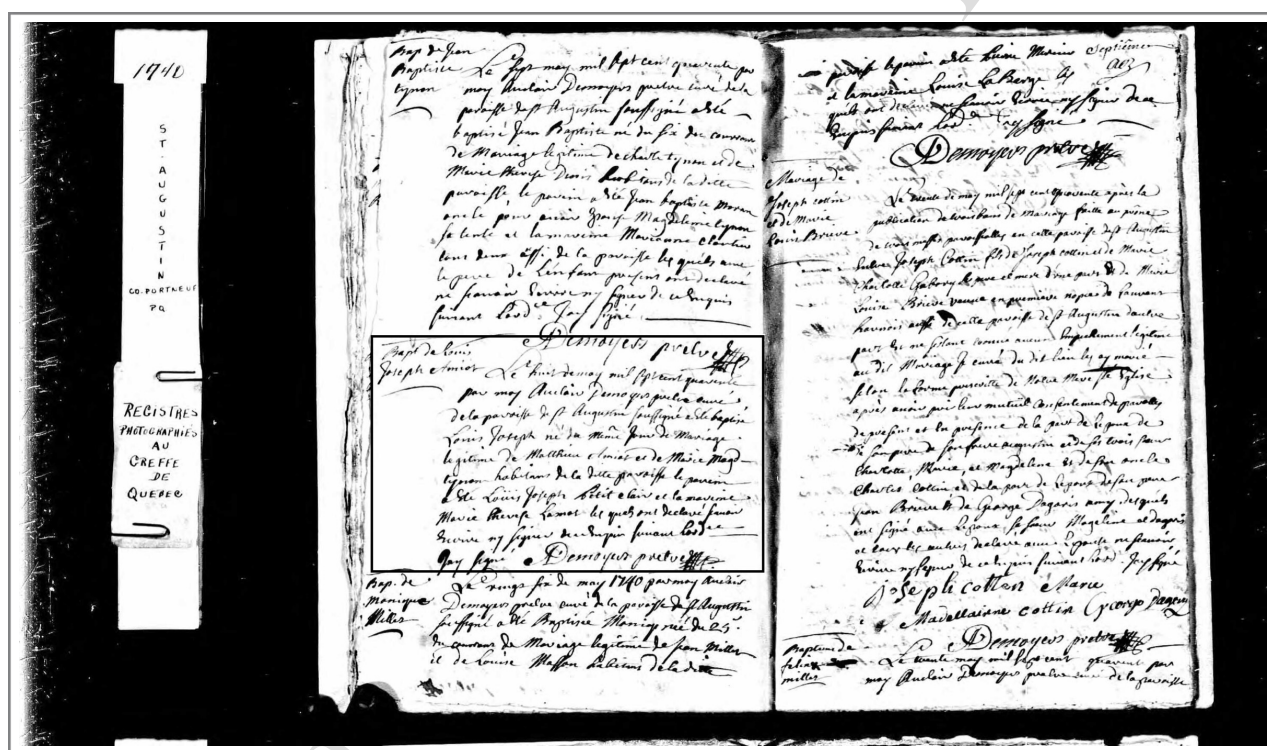 1740
ST. AUGUSTIN
CO. PORTNEUF
PQ
REGISTRES
PHOTOGRAPHIÉS
AU
GREFFE
DE
QUEBEC
Bap. de Jean
Baptiste
tynon
Le sept may mil sept cent quarente par
moy Auclair Demoyers prêtre curé de la
paroisse de st Augustin soussigné a été
baptisé Jean Baptiste né du six du courant
de Mariage legitime de charle tynon et de
Marie therese Denis habitans de la ditte
paroisse, le parein a été Jean baptiste Moran
Magdeleine tynon
sa tente et la mareine Marianne
tous deux de la paroisse les quels avec
le pere de Lenfant presens ont declaré
ne scavoir Ecrire ny signer de ce Enquis
suivant Lord.ce Jay signé.
Demoyers pretre
Bapt. de Louis
Joseph Amiot
Le huit de may mil sept cent quarente
par moy Auclair Demoyers pretre curé
de la paroisse de st Augustin soussigné a été baptisé
Louis Joseph né du même jour de Mariage
legitime de Matthieu Amiot et de Marie Magd.
tynon habitans de la ditte paroisse le parein
a été Louis Joseph petit clair et la mareine
Marie therese Lamot les quels ont declaré scavoir
Ecrire ny signer de ce Enquis suivant Lord.ce
Jay signé Demoyers pretre
Bap. de
Monique
Milles
Le vingt six de may 1740 par moy Auclair
Demoyers pretre curé de la paroisse de st Augustin
soussigné a été Baptisée Monique né du 25.
du courant de Mariage legitime de Jean Milles
et de Louise Masson habitans de la ditte
Septième
paroisse le parein a été
et la mareine Louise La Berge les
quels ont declaré ne scavoir Ecrire ny signer de ce
Enquis suivant Lord.ce Jay signé
Demoyers pretre
Mariage de
Joseph cottin
et de Marie
Louise Brieve
Le trente de may mil sept cent quarente après la
publication de trois bans de mariage faitte au prône
de trois messes paroissialles en cette paroisse de st Augustin
Entre Joseph Cottin fils de Joseph cottin et de Marie
charlotte Gabory le pere et mere d'une part Et de Marie
Louise Brieve veuve en premiere nopces de
de cette paroisse de st Augustin dautre
part Et ne sestant trouvé aucun Empechement legitime
au dit Mariage Je curé du dit lieu les ay mariés
selon la forme prescritte de Notre Mere ste Eglise
après avoir pris leur mutuel consentement de parolles
de present et En presence de la part de Lepoux de
son pere de son frere augustin et de ses trois soeurs
Charlotte Marie, et Magdeleine Et de son oncle
Charles Cottin, et de la part de Lepouse de son pere
Jean Brieve Et de George Dagoris amy desquels
ont signé avec Lepoux sa soeur Magdeline et dagoris
et tous les autres declaré avec Lepouse ne scavoir
Ecrire ny signer de ce Enquis suivant Lord. Jay signé
Joseph cotten Marie
Madellainne cottin George Dagori
Demoyers pretre
Baptême de
milles
Le trente may mil sept cent quarente par
moy Auclair Demoyers pretre curé de la paroisse